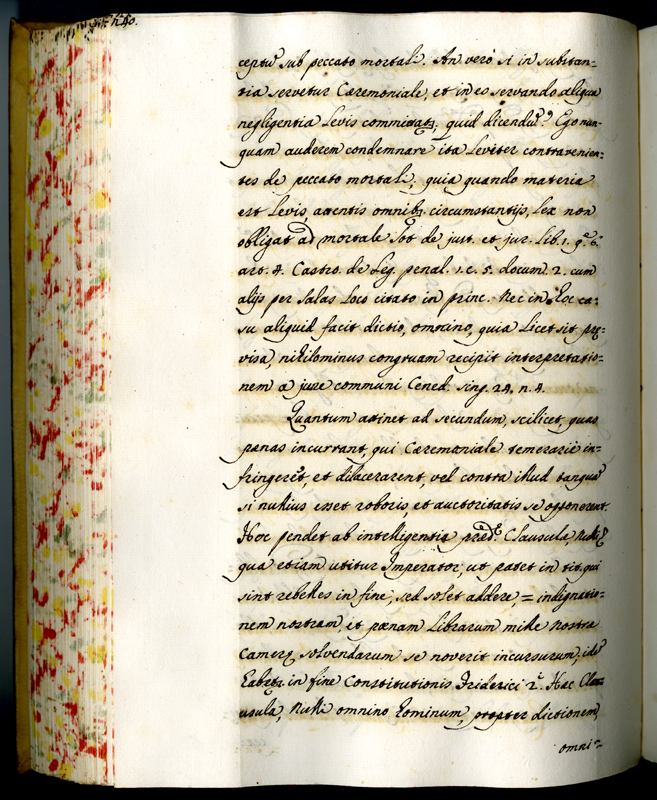 n. 40.
ceptũ sub peccato mortali. An verò si in substan-
tia servetur Cæremoniale, et in eo servando aliqua
negligentia levis committatr, quid dicendũ? Ego nun-
quam auderem condemnare ita leviter contravenien-
tes de peccato mortali, quia quando materia
est levis, attentis omnibq circumstantijs, lex non
obligat ad mortale Sot. de just. et jur. lib. 1. q. 6.
art. 4. Castro. de leg. penal. 1. c. 5. docum. 2. cum
alijs per Salas loco citato in princ. Nec in hoc ca-
su aliquid facit dictio, omnino, quia licet sit præ-
cisa, nihilominus congruam recipit interpretatio-
nem a jure communi Cened. sing. 24. n. 4.
Quantum attinet ad secundum, scilicet, quas
pænas incurrant, qui Cæremoniale temerariè in-
fringerẽt, et dilacerarent, vel contra illud tanquã
si nullius esset roboris, et auctoritatis se opponerent.
Hoc pendet ab intelligentia præd. Clausula, Nulli
qua etiam utitur Imperator, ut patet in tit. qui
sint rebelles in fine, sed solet addere, = indignatio-
nem nostram, et pænam librarum mille nostræ
Cameræ solvendarum se noverit incursurum, idẽ
habetr in fine Constitutionis Friderici 2. Hac Cla-
usula, Nulli omnino hominum, propter dictionem,
omni-